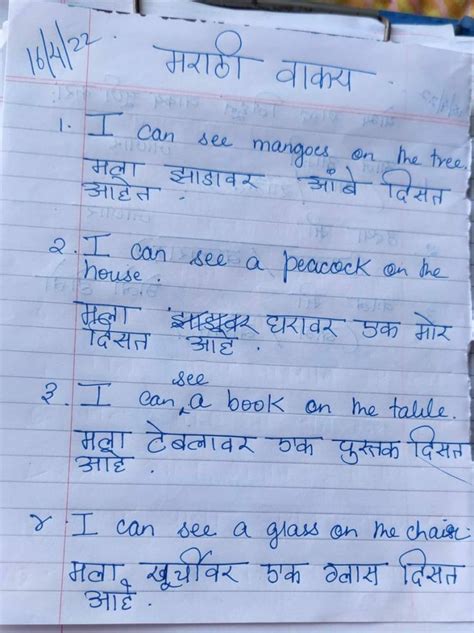 16/4/22
मराठी वाक्य
1. I can see mangoes on the tree.
मला झाडावर आंबे दिसत
आहेत.
2. I can see a peacock on the
house.
मला झाडावर घरावर एक मोर
दिसत आहे.
३. I can see a book on the table.
मला टेबलावर एक पुस्तक दिसत
आहे.
४. I can see a glass on the chair.
मला खूर्चीवर एक ग्लास दिसत
आहे.